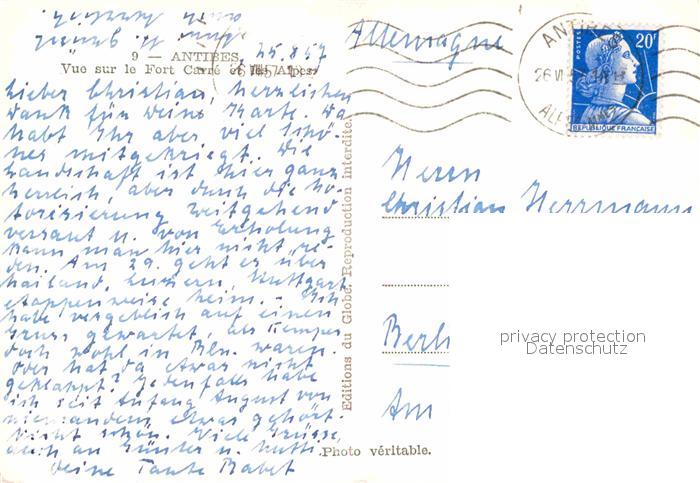 9 — ANTIBES
Vue sur le Fort Carré et les Alpes
25.8.57
Lieber Christian, herzlichen
Dank für Deine Karte. Da
habt Ihr aber viel Schö-
nes mitgekriegt. Die
Landschaft ist hier ganz
herrlich, aber durch die Mo-
torisierung weitgehend
versaut u. von Erholung
kann man hier nicht re-
den. Am 29. geht es über
Mailand, Luzern, Stuttgart
etappenweise heim. – Ich
habe vergeblich auf einen
Gruss gewartet, als
doch wohl in Bln. waren.
Oder hat da etwas nicht
geklappt? Jedenfalls habe
ich seit Anfang August von
niemandem etwas gehört.
Nicht schön. Viele Grüsse,
auch an Günter u. Mutti.
Deine Tante Babet
Editions du Globe. Reproduction interdite.
Photo véritable.
Allemagne
ANTIBES
26 VI
POSTES
20F
REPUBLIQUE FRANÇAISE
Herrn
Christian Herrmann
Berli
Am
privacy protection
Datenschutz